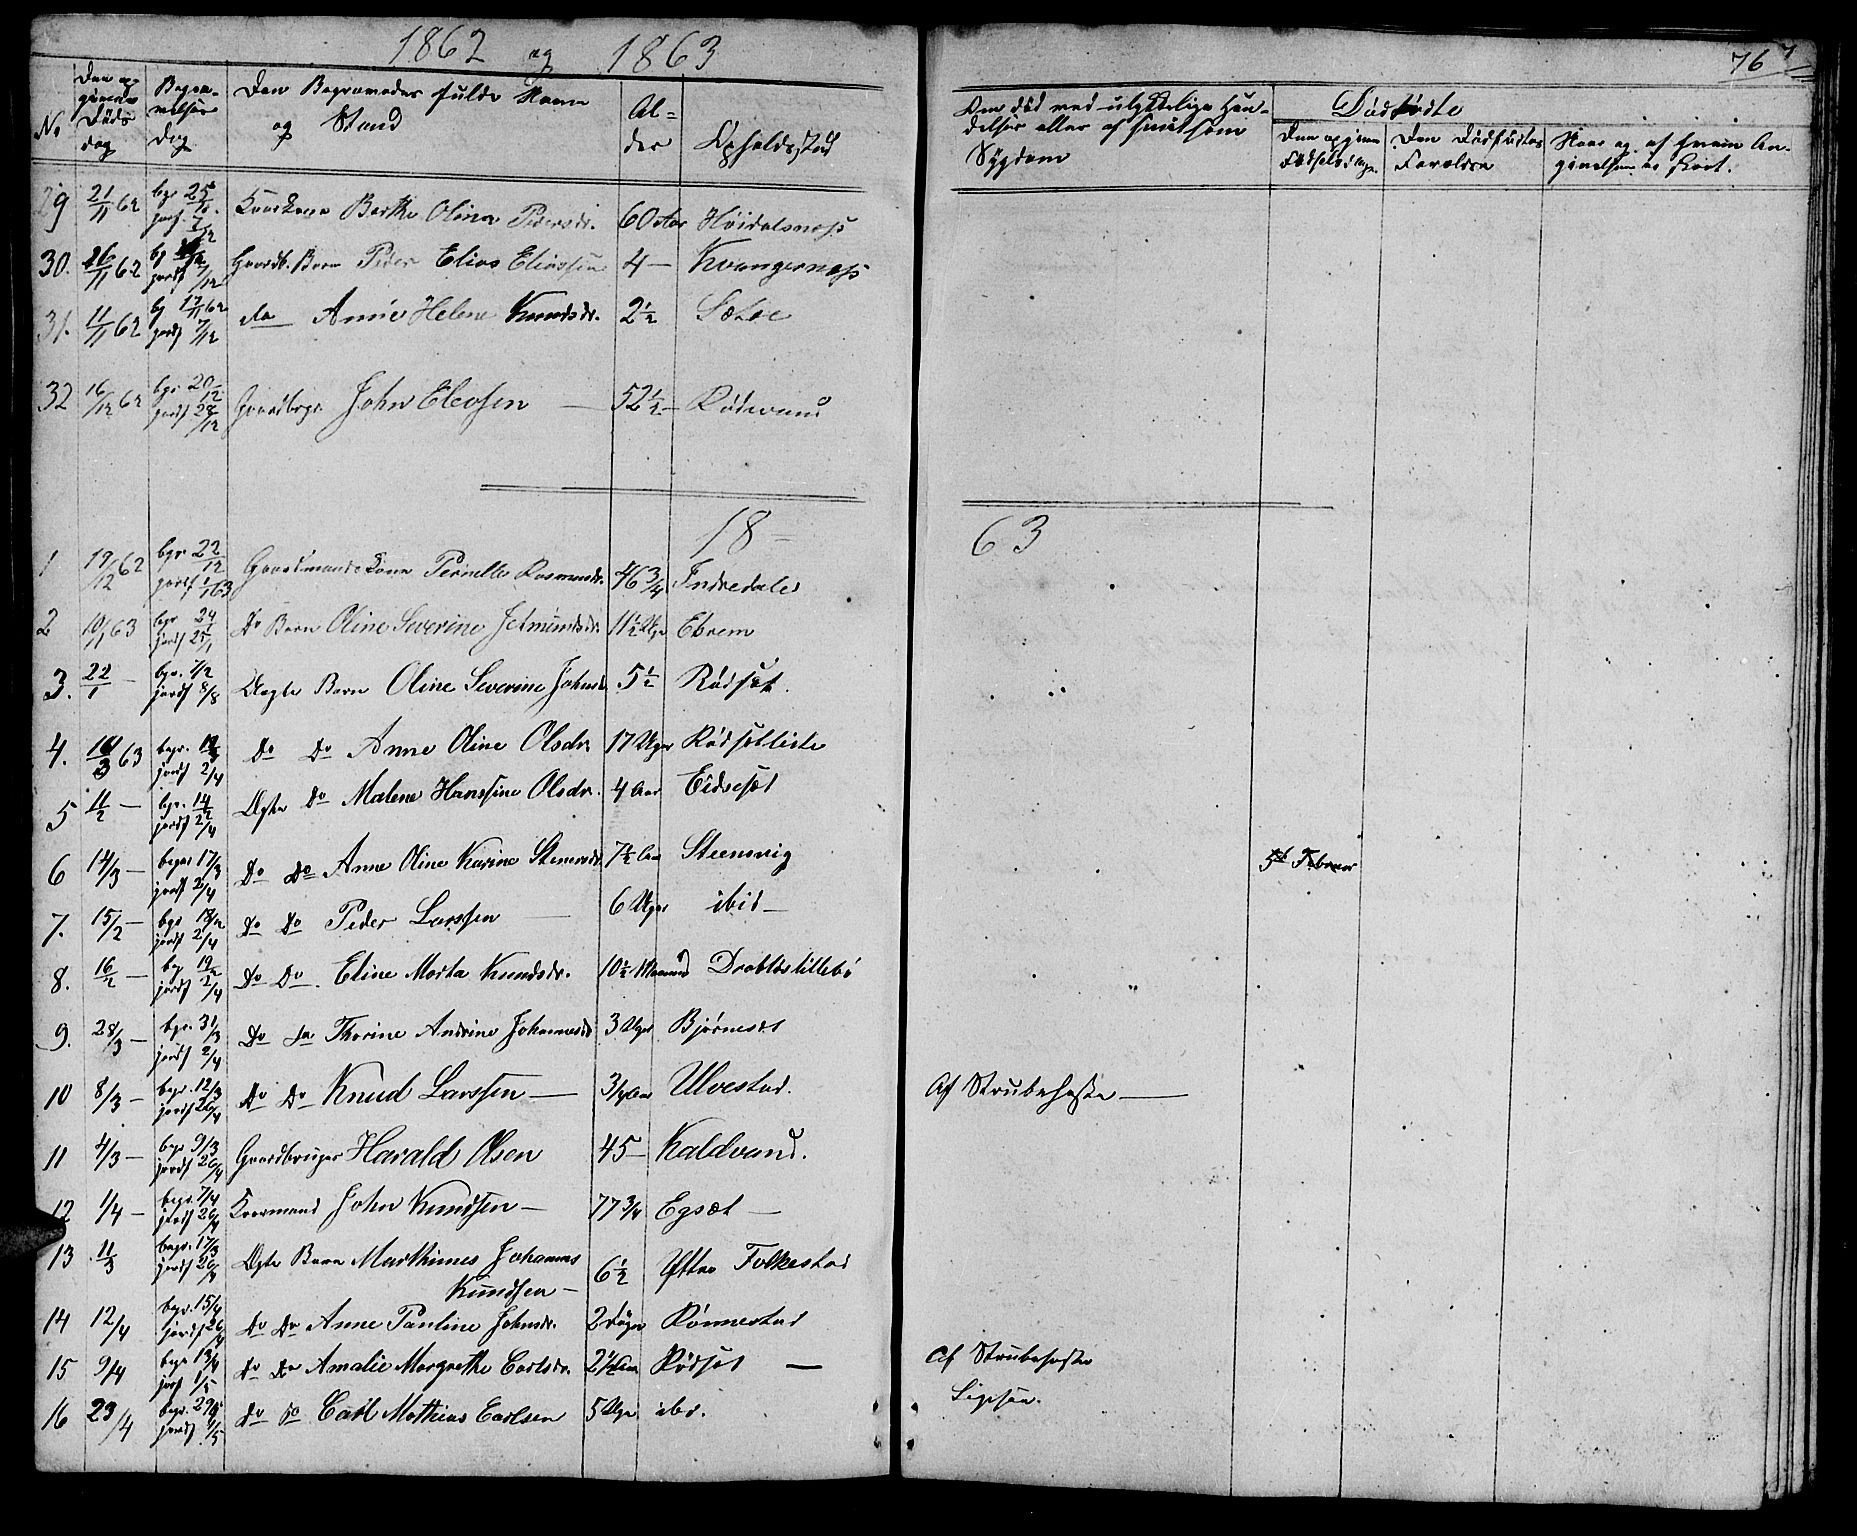 1862 og 1863
76
No
Den op-
givne
Døds
dag
Begra-
velses
Dag
Den Begravedes fulde Navn
og Stand
Al-
der
Opholdssted
Om død ved ulykkelige Hæn-
delser eller af smitsom
Sygdom
Dødfødte
Den opgivne
Fødselsdag
Den Dødfødtes
Forældre
Naar og af hvem An-
givelsen er skeet.
29 21/11 62 bgr 25/11 jords. 7/12 Berthe Olina Pedersdr. 60 Aar Høidalsnæs
30. 26/11 62 jords 7/12 Gaardb. Barn Peder Elias Eliassen 4 — Kvangernæs
31. 11/11 62 bg 17/11 62 jords 7/12 do Anne Helene Knudsdr. 2½ Sætre
32 16/12 62 bgr 20/12 jords 28/12 Gaardbrgr. John Elevsen — 52½ — Rødevand
18 — 63
1 19/12 62 bgr 22/12 jords 1/1 63 Gaardmands Kone Pernelle Rasmusdr. 46¾ Indredale
2 10/1 63 bgr 24/1 jords 25/1 Do Barn Oline Severine Jetmundsdr. 11½ Uge Ebrem
3. 22/1 — bgr. 7/2 jords 8/8 Ægte Barn Oline Severine Johnsdr. 5½ Rødsæt.
4. 10/3 63 bgr. jords 2/4 Do Do Anne Oline Olsdr 17 Uger Rødsætlitle
5 11/2 — bgr. 14/2 jords 2/4 Ægte Do Malene Hanssine Olsdr. 4 Aar Eidsesæt
6 14/3 — begr 17/3 jords 2/4 Do Do Anne Oline Karine Steensdr 7½ Aar Steensvig 5te Februar
7. 15/2 — bgr 18/2 jords 2/4 Do Do Peder Larssen — 6 Uger ibid —
8. 16/2 — bgr 19/2 jords 2/4 Do Do. Eline Marta Knudsdr. 10½ Maaned Drabløslillebø
9. 28/3 — bgr. 31/3 jords 2/4 Do Do Thorine Andrine Johannesdr 3 Uger Bjørnesæt
10 8/3 — bgr. 12/3 jords 26/4 Do Do Knud Larssen — ¾ Aar Ulvestad. Af Strubehoste —
11 4/3 — bgr 9/3 jords 26/4 Gaardbruger Harald Olsen 45 — Kaldvand.
12 1/4 — begr. 7/4 jords 26/4 Kaarmand John Knudssen — 77¾ Egsæt —
13 11/3 begr. 17/3 jords 26/4 Ægte Barn Marthinus Johannes
Knudssen — 6½ Yttre Folkestad
14 12/4 bgr. 15/4 jords 26/4 Do Do Anne Pauline Johnsdr. 2 Døgn Rønnestad
15 9/4 bgr 13/4 jords 1/5 Do Do Amalie Margrethe Carlsdr. 2½ Aar Rødsæt — Af Strubehoste
16 23/4 begr. 29/4 jords 1/5 Do Do Carl Mathias Carlsen 5 Uger ibd. Ligesaa.